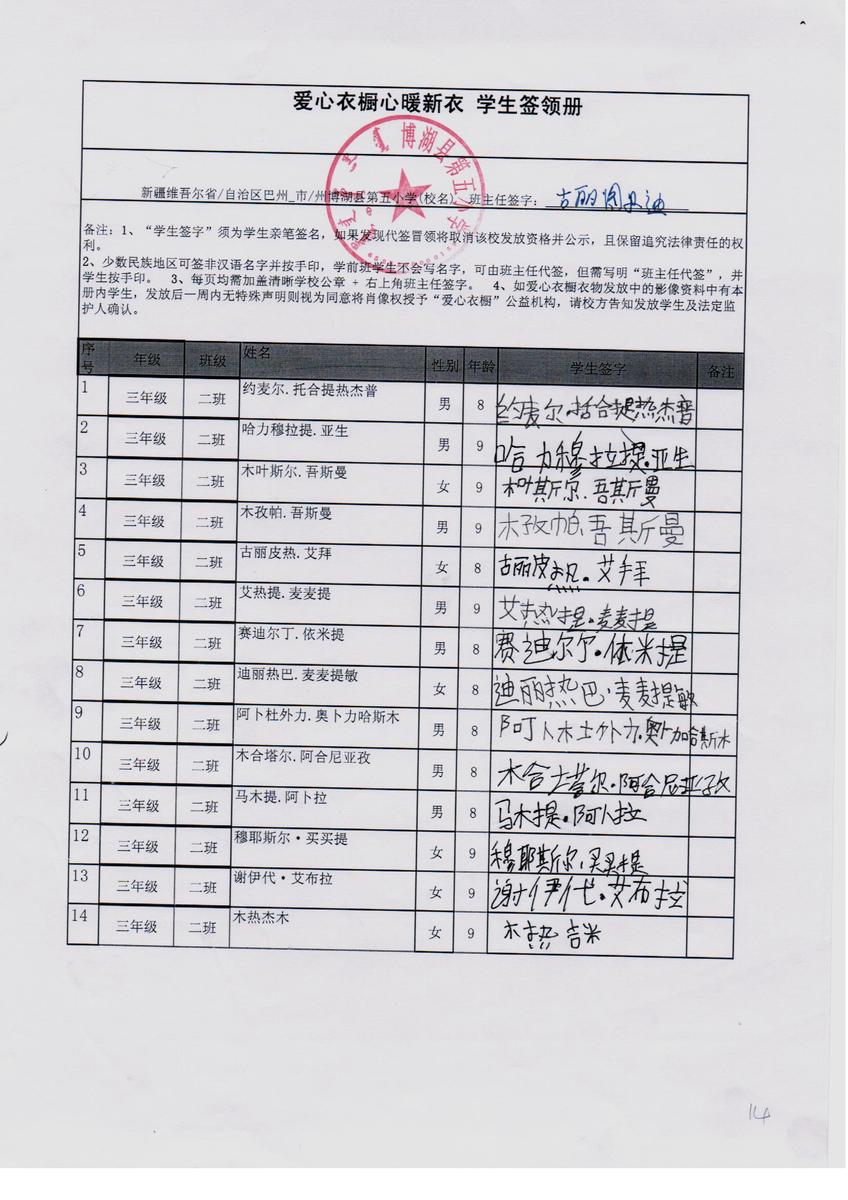 爱心衣橱心暖新衣 学生签领册
博湖县第五小学
新疆维吾尔省/自治区巴州_市/州博湖县第五小学(校名) 班主任签字：古丽
备注：1、“学生签字”须为学生亲笔签名，如果发现代签冒领将取消该校发放资格并公示，且保留追究法律责任的权
利。
2、少数民族地区可签非汉语名字并按手印，学前班学生不会写名字，可由班主任代签，但需写明“班主任代签”，并
学生按手印。 3、每页均需加盖清晰学校公章 + 右上角班主任签字。 4、如爱心衣橱衣物发放中的影像资料中有本
册内学生，发放后一周内无特殊声明则视为同意将肖像权授予“爱心衣橱”公益机构，请校方告知发放学生及法定监
护人确认。
序号 年级 班级 姓名 性别 年龄 学生签字 备注
1 三年级 二班 约麦尔.托合提热杰普 男 8 约麦尔.托合提热杰普
2 三年级 二班 哈力穆拉提.亚生 男 9 哈力穆拉提.亚生
3 三年级 二班 木叶斯尔.吾斯曼 女 9 木叶斯尔.吾斯曼
4 三年级 二班 木孜帕.吾斯曼 男 9 木孜帕.吾斯曼
5 三年级 二班 古丽皮热.艾拜 女 8 古丽皮热.艾拜
6 三年级 二班 艾热提.麦麦提 男 9 艾热提.麦麦提
7 三年级 二班 赛迪尔丁.依米提 男 8 赛迪尔尔.依米提
8 三年级 二班 迪丽热巴.麦麦提敏 女 8 迪丽热巴.麦麦提敏
9 三年级 二班 阿卜杜外力.奥卜力哈斯木 男 8 阿卜杜外力.奥卜力哈斯木
10 三年级 二班 木合塔尔.阿合尼亚孜 男 8 木合塔尔.阿合尼亚孜
11 三年级 二班 马木提.阿卜拉 男 8 马木提.阿卜拉
12 三年级 二班 穆耶斯尔·买买提 女 9 穆耶斯尔.买买提
13 三年级 二班 谢伊代·艾布拉 女 9 谢伊代.艾布拉
14 三年级 二班 木热杰木 女 9 木热吉米
14